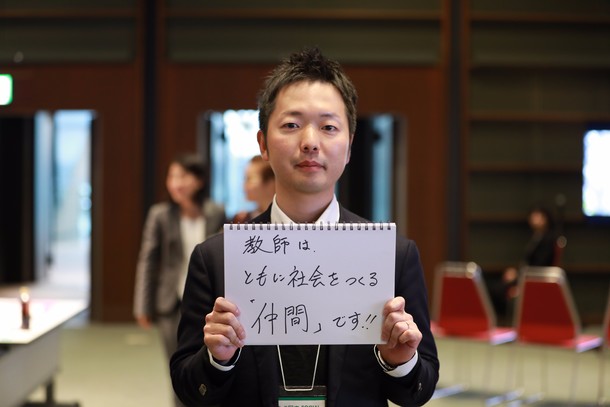 教師は、
ともに社会をつくる
「仲間」です!!